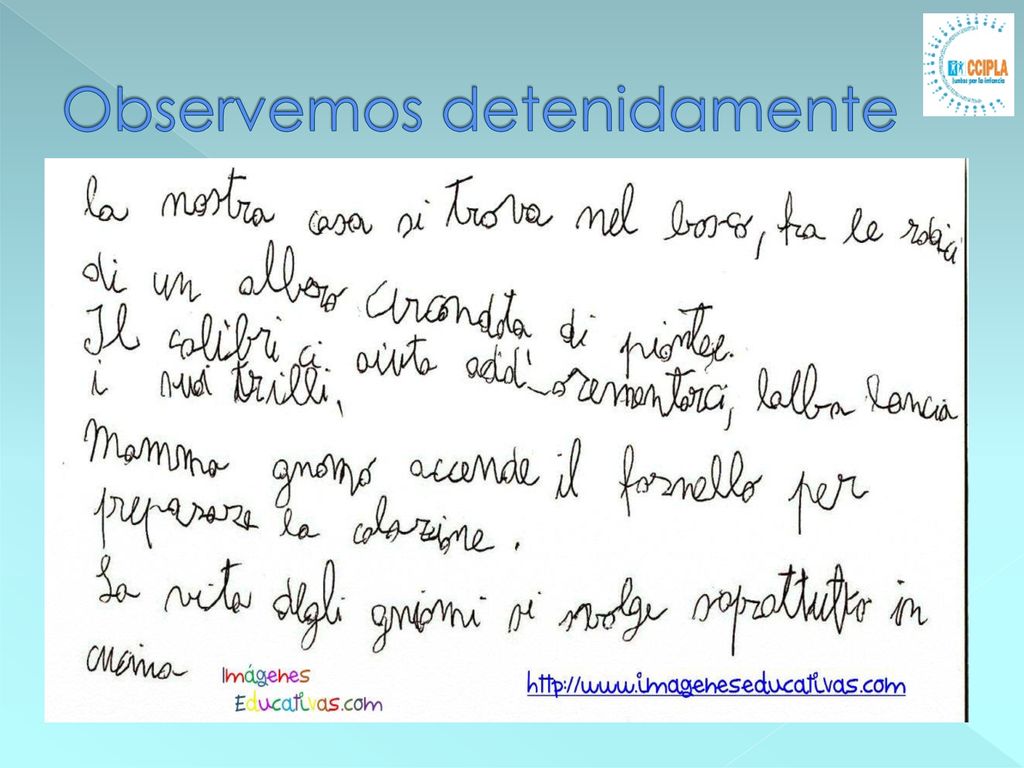 CCIPLA
Juntos por la infancia
Observemos detenidamente
la nostra casa si trova nel bosco, fra le radici
di un albero circondata di piantage.
Il colibri ci aiuta add'_orementarci, lalba lancia
i suoi trilli.
Mamma gnomo accende il fornello per
preparare la colazione.
La vita degli gniomi si svolge soprattutto in
cucina
Imágenes
Educativas.com
http://www.imageneseducativas.com